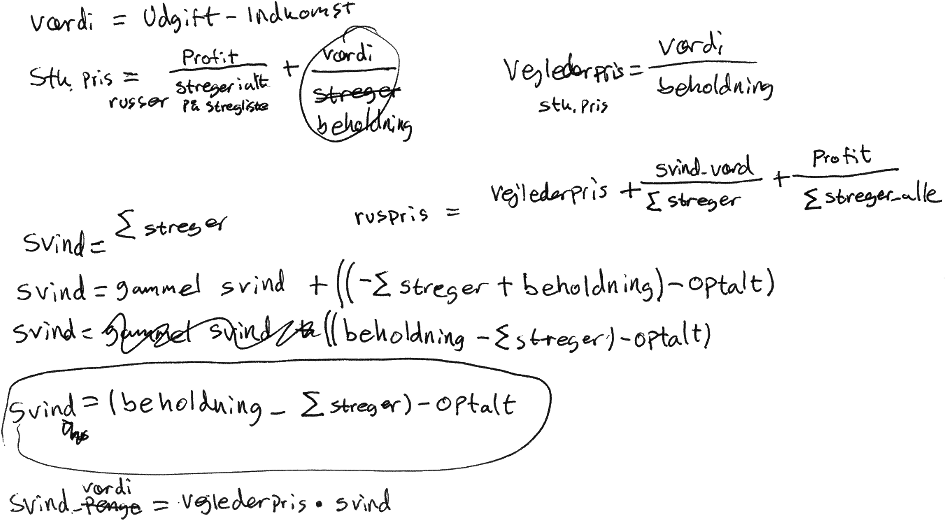 værdi = Udgift - Indkomst
Stk. pris russer = Profit / stregerialt på stregliste + værdi / streger beholdning
Vejlederpris stk. pris = værdi / beholdning
ruspris = vejlederpris + svind_værd / Σ streger + Profit / Σ streger_alle
Svind = Σ streger
svind = gammel svind + ((-Σ streger + beholdning) - optalt)
svind = gammel svind + ((beholdning - Σ streger) - optalt)
svind = (beholdning - Σ streger) - optalt
Svind_penge værdi = vejlederpris · svind